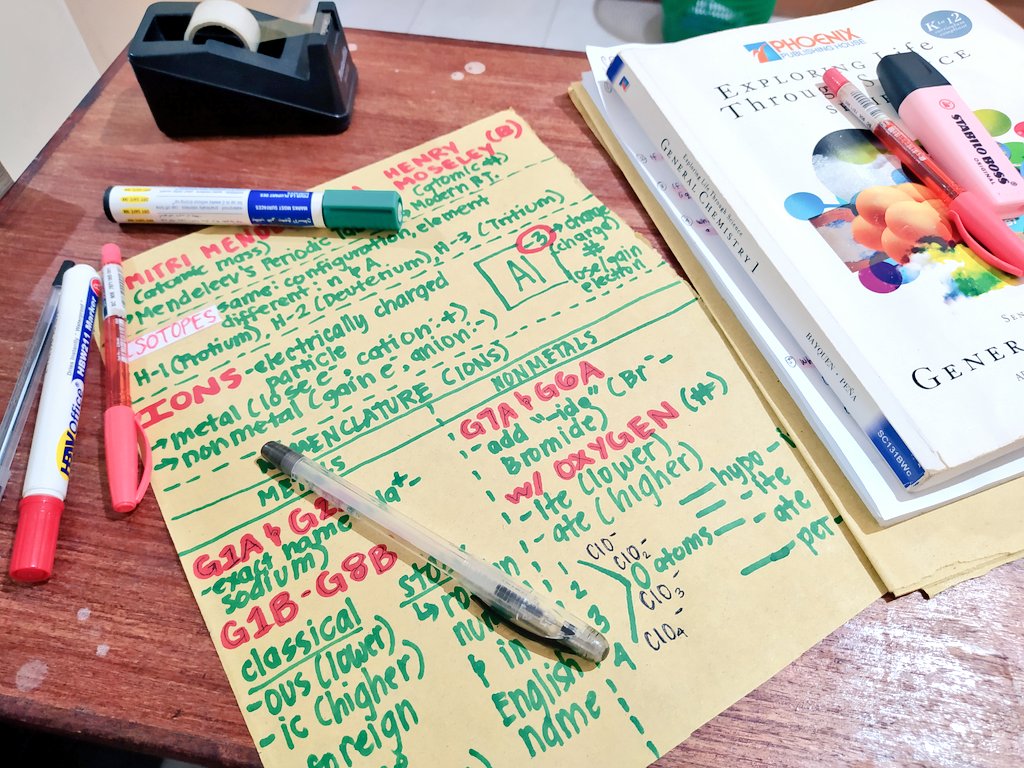 HENRY
MOSELEY (#)
(atomic #)
→ Modern P.T.
MITRI MEND
(atomic mass)
→ Mendeleev's Periodic
ISOTOPES
same: configuration, element
different: n° & A
H-1 (Protium), H-2 (Deuterium), H-3 (Tritium)
Al
3
→ charge
(charge)
#
lose/gain
electron
IONS - electrically charged
particle
→ metal (lose e⁻, cation: +)
→ nonmetal (gain e⁻, anion: -)
NOMENCLATURE (IONS)
NONMETALS
G1A & G2
- exact name
sodium)
G1B - G8B
classical
- ous (lower)
- ic (higher)
STO
English
name
G7A & G6A
add "-ide" (Br
Bromide)
w/ OXYGEN (#)
- ite (lower)
- ate (higher)
1
2
3
4
O atoms
ClO⁻
ClO₂⁻
ClO₃⁻
ClO₄⁻
hypo-
- ite
- ate
per
HBW office
HBW211 Marker
PHOENIX
PUBLISHING HOUSE
K to 12
EXPLORING Life
Through
Exploring Life Through Science
GENERAL CHEMISTRY 1
BAYQUEN - PEÑA
SC131BWc
GENER
STABILO BOSS
ORIGINAL